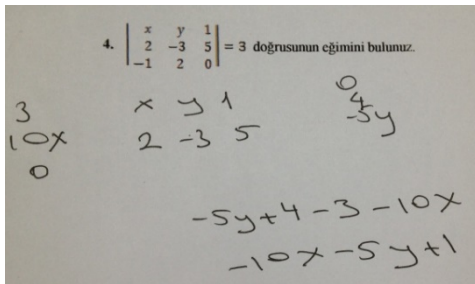 4. | x y 1 |
| 2 -3 5 | = 3 doğrusunun eğimini bulunuz.
| -1 2 0 |
3
10x
0
x y 1
2 -3 5
0
4
-5y
-5y+4-3-10x
-10x-5y+1